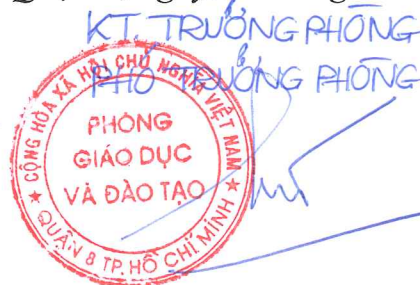 KT. TRƯỞNG PHÒNG
PHÓ TRƯỞNG PHÒNG
CỘNG HÒA XÃ HỘI CHỦ NGHĨA VIỆT NAM
PHÒNG
GIÁO DỤC
VÀ ĐÀO TẠO
★ QUẬN 8 TP. HỒ CHÍ MINH ★